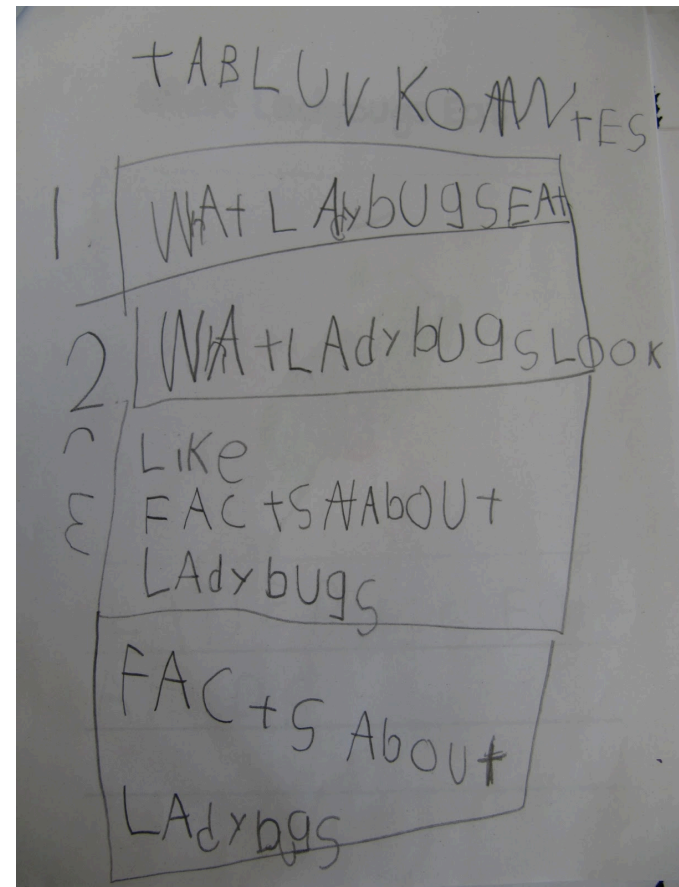 tABLUVKOANtES
1 WhAt LAdybUgSEAt
2 WhAtLAdybUgSLOOK
LiKe
3 FACtS AbOUt
LAdybUgS
FACtS AbOUt
LAdybUgS